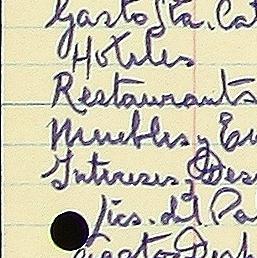 Gasto Sta. Cat
Hoteles
Restaurants
Muebles y En
Intereses Des
Lics. del Pa
Gastos Desp